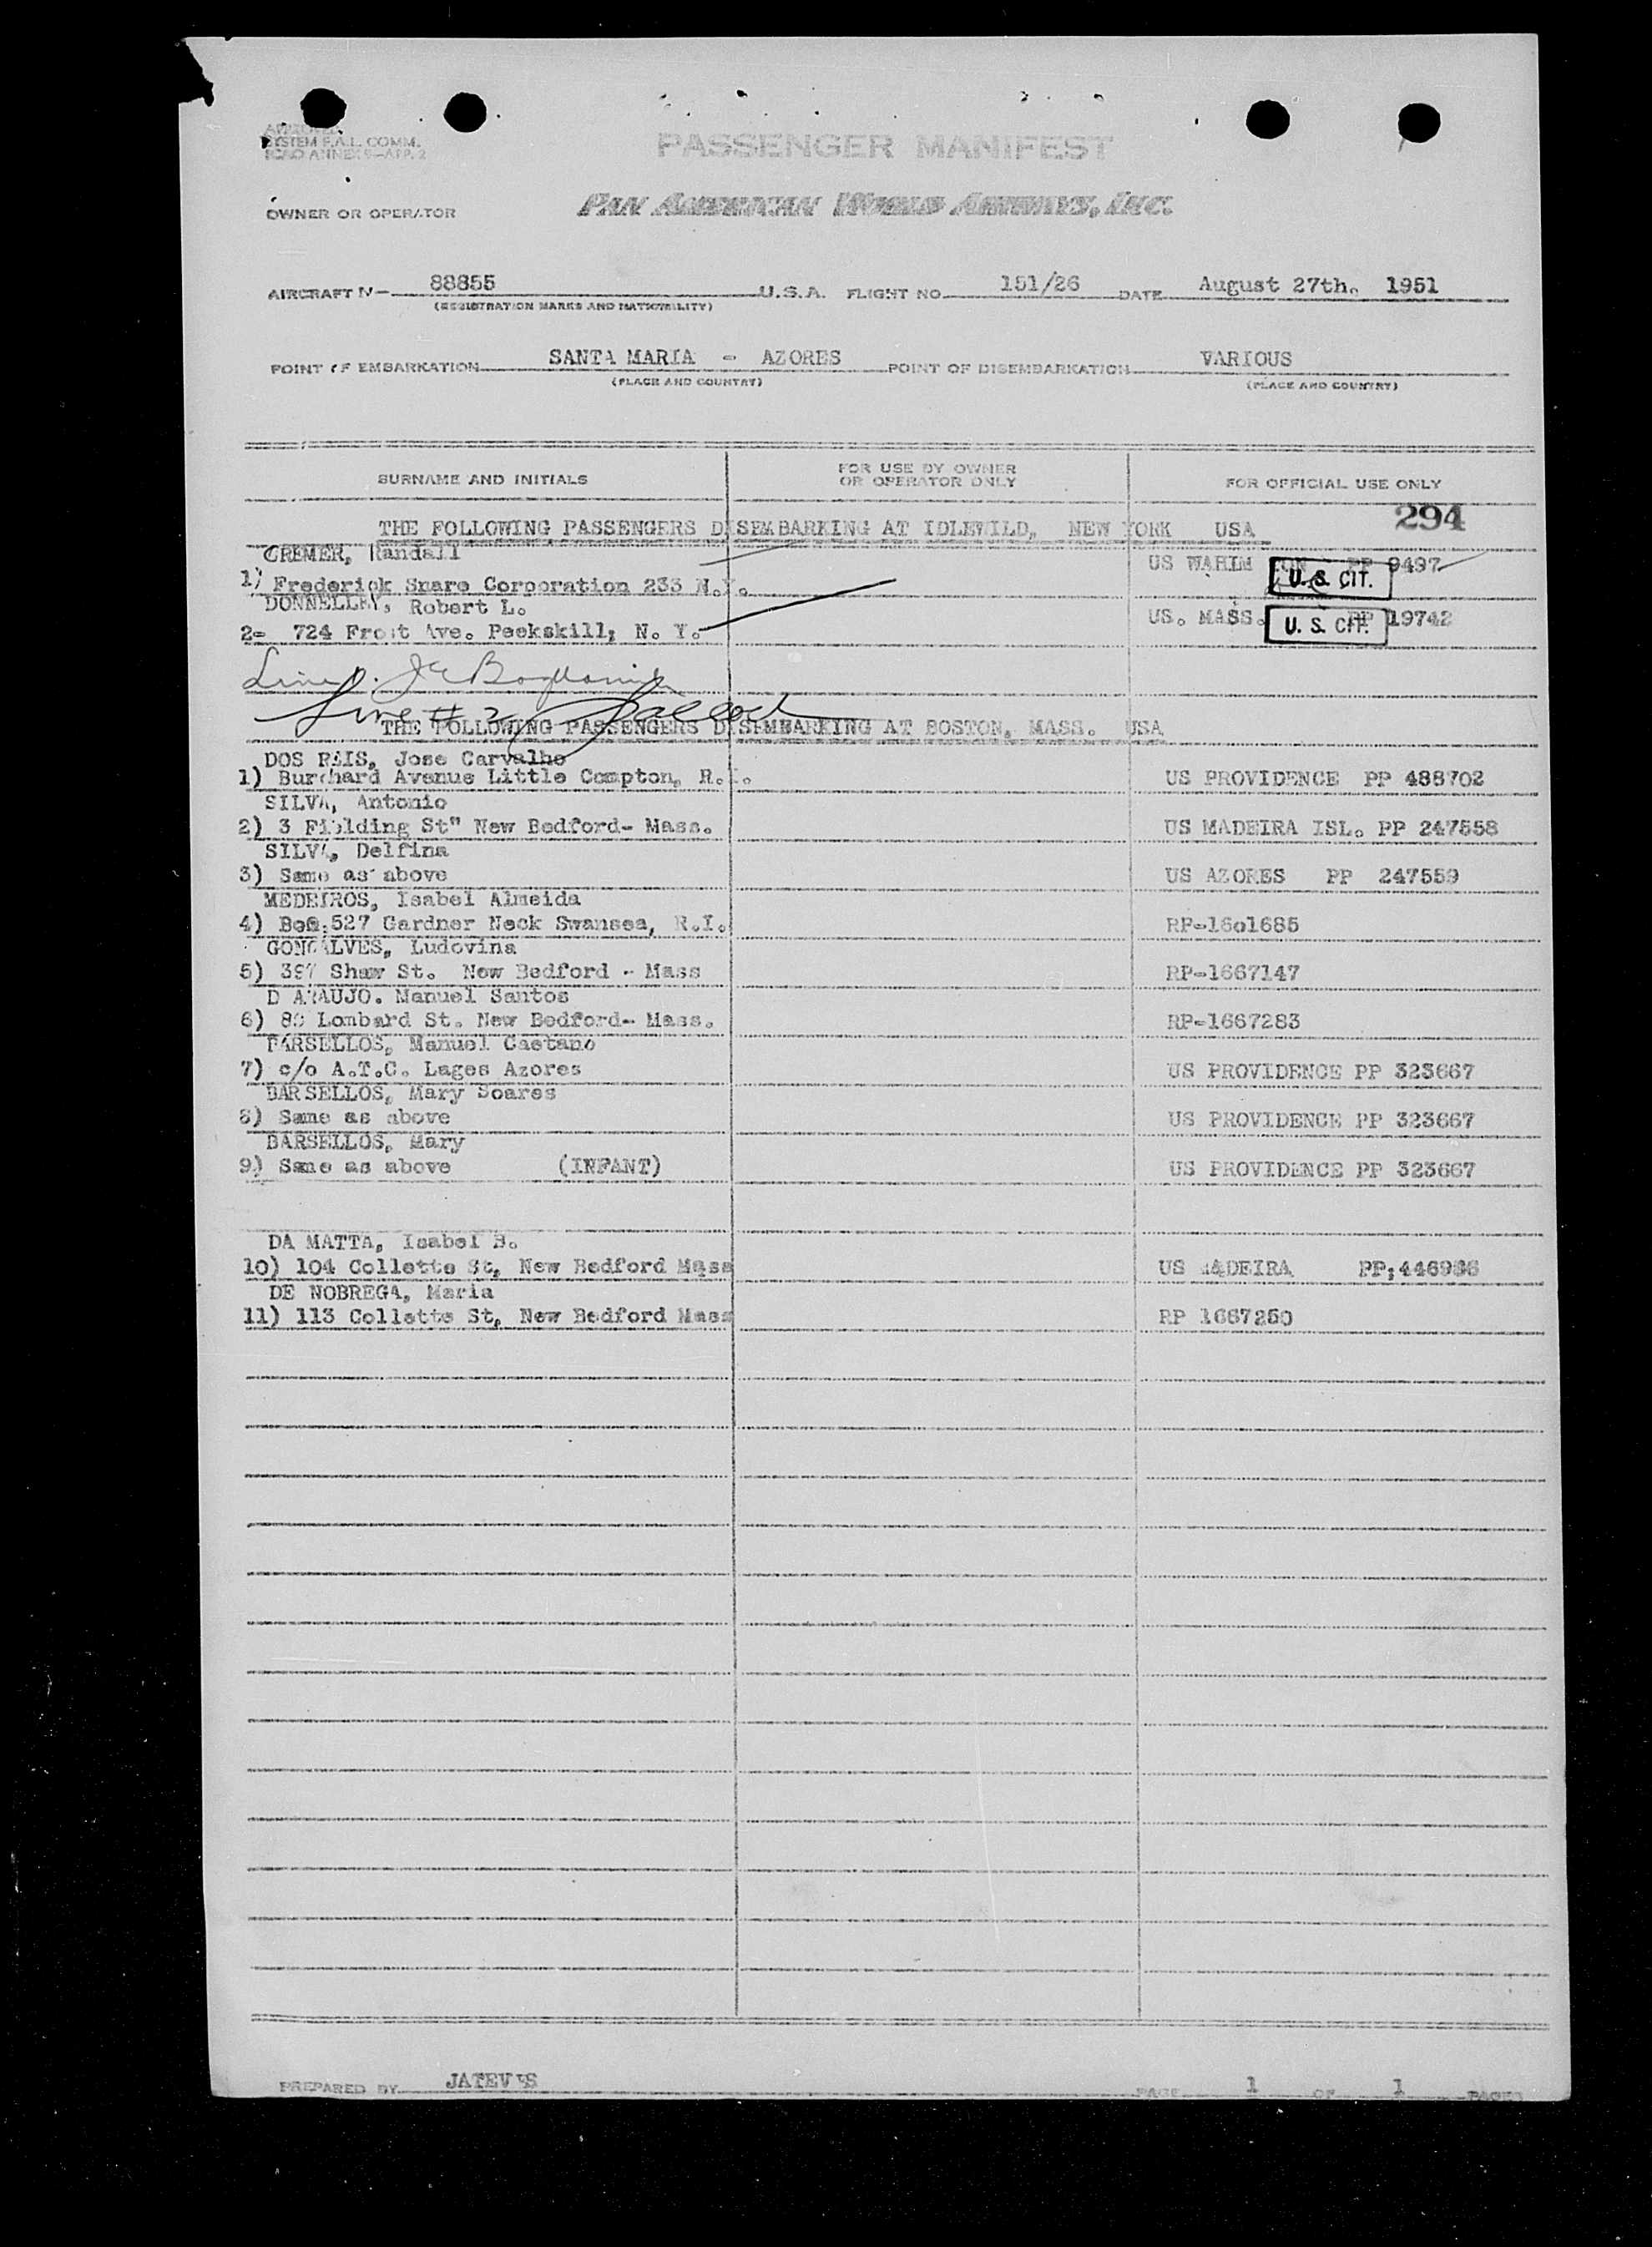 APPROVED
SYSTEM F.A.L. COMM.
ICAO ANNEX 9—APP. 2
PASSENGER MANIFEST
OWNER OR OPERATOR PAN AMERICAN WORLD AIRWAYS, INC.
AIRCRAFT N— 88855 U.S.A. FLIGHT NO. 151/26 DATE August 27th. 1951
(REGISTRATION MARKS AND NATIONALITY)
POINT OF EMBARKATION SANTA MARIA - AZORES POINT OF DISEMBARKATION VARIOUS
(PLACE AND COUNTRY) (PLACE AND COUNTRY)
SURNAME AND INITIALS FOR USE BY OWNER OR OPERATOR ONLY FOR OFFICIAL USE ONLY
294
THE FOLLOWING PASSENGERS DISEMBARKING AT IDLEWILD, NEW YORK USA
CREMER, Randall
1) Frederick Snare Corporation 233 N.Y. US PP 9497 U.S. CIT.
DONNELLEY, Robert L.
2= 724 Frost Ave. Peekskill; N. Y. US. MASS. PP 19742 U.S. CIT.
Line
Line # 2
THE FOLLOWING PASSENGERS DISEMBARKING AT BOSTON, MASS. USA
DOS REIS, Jose Carvalho
1) Burchard Avenue Little Compton, R.I. US PROVIDENCE PP 488702
SILVA, Antonio
2) 3 Fielding St" New Bedford- Mass. US MADEIRA ISL. PP 247558
SILVA, Delfina
3) Same as above US AZORES PP 247559
MEDEIROS, Isabel Almeida
4) 527 Gardner Neck Swansea, R.I. RP-16o1685
GONCALVES, Ludovina
5) 397 Shaw St. New Bedford - Mass RP-1667147
D ARAUJO. Manuel Santos
6) Lombard St. New Bedford- Mass. RP-1667283
BARSELLOS, Manuel Caetano
7) c/o A.T.C. Lages Azores US PROVIDENCE PP 323667
BARSELLOS, Mary Soares
8) Same as above US PROVIDENCE PP 323667
BARSELLOS, Mary
9) Same as above (INFANT) US PROVIDENCE PP 323667
DA MATTA, Isabel B.
10) 104 Collette St, New Bedford Mass US MADEIRA PP; 446986
DE NOBREGA, Maria
11) 113 Collette St, New Bedford Mass RP 1667250
PREPARED BY PAGE 1 OF 1 PAGES